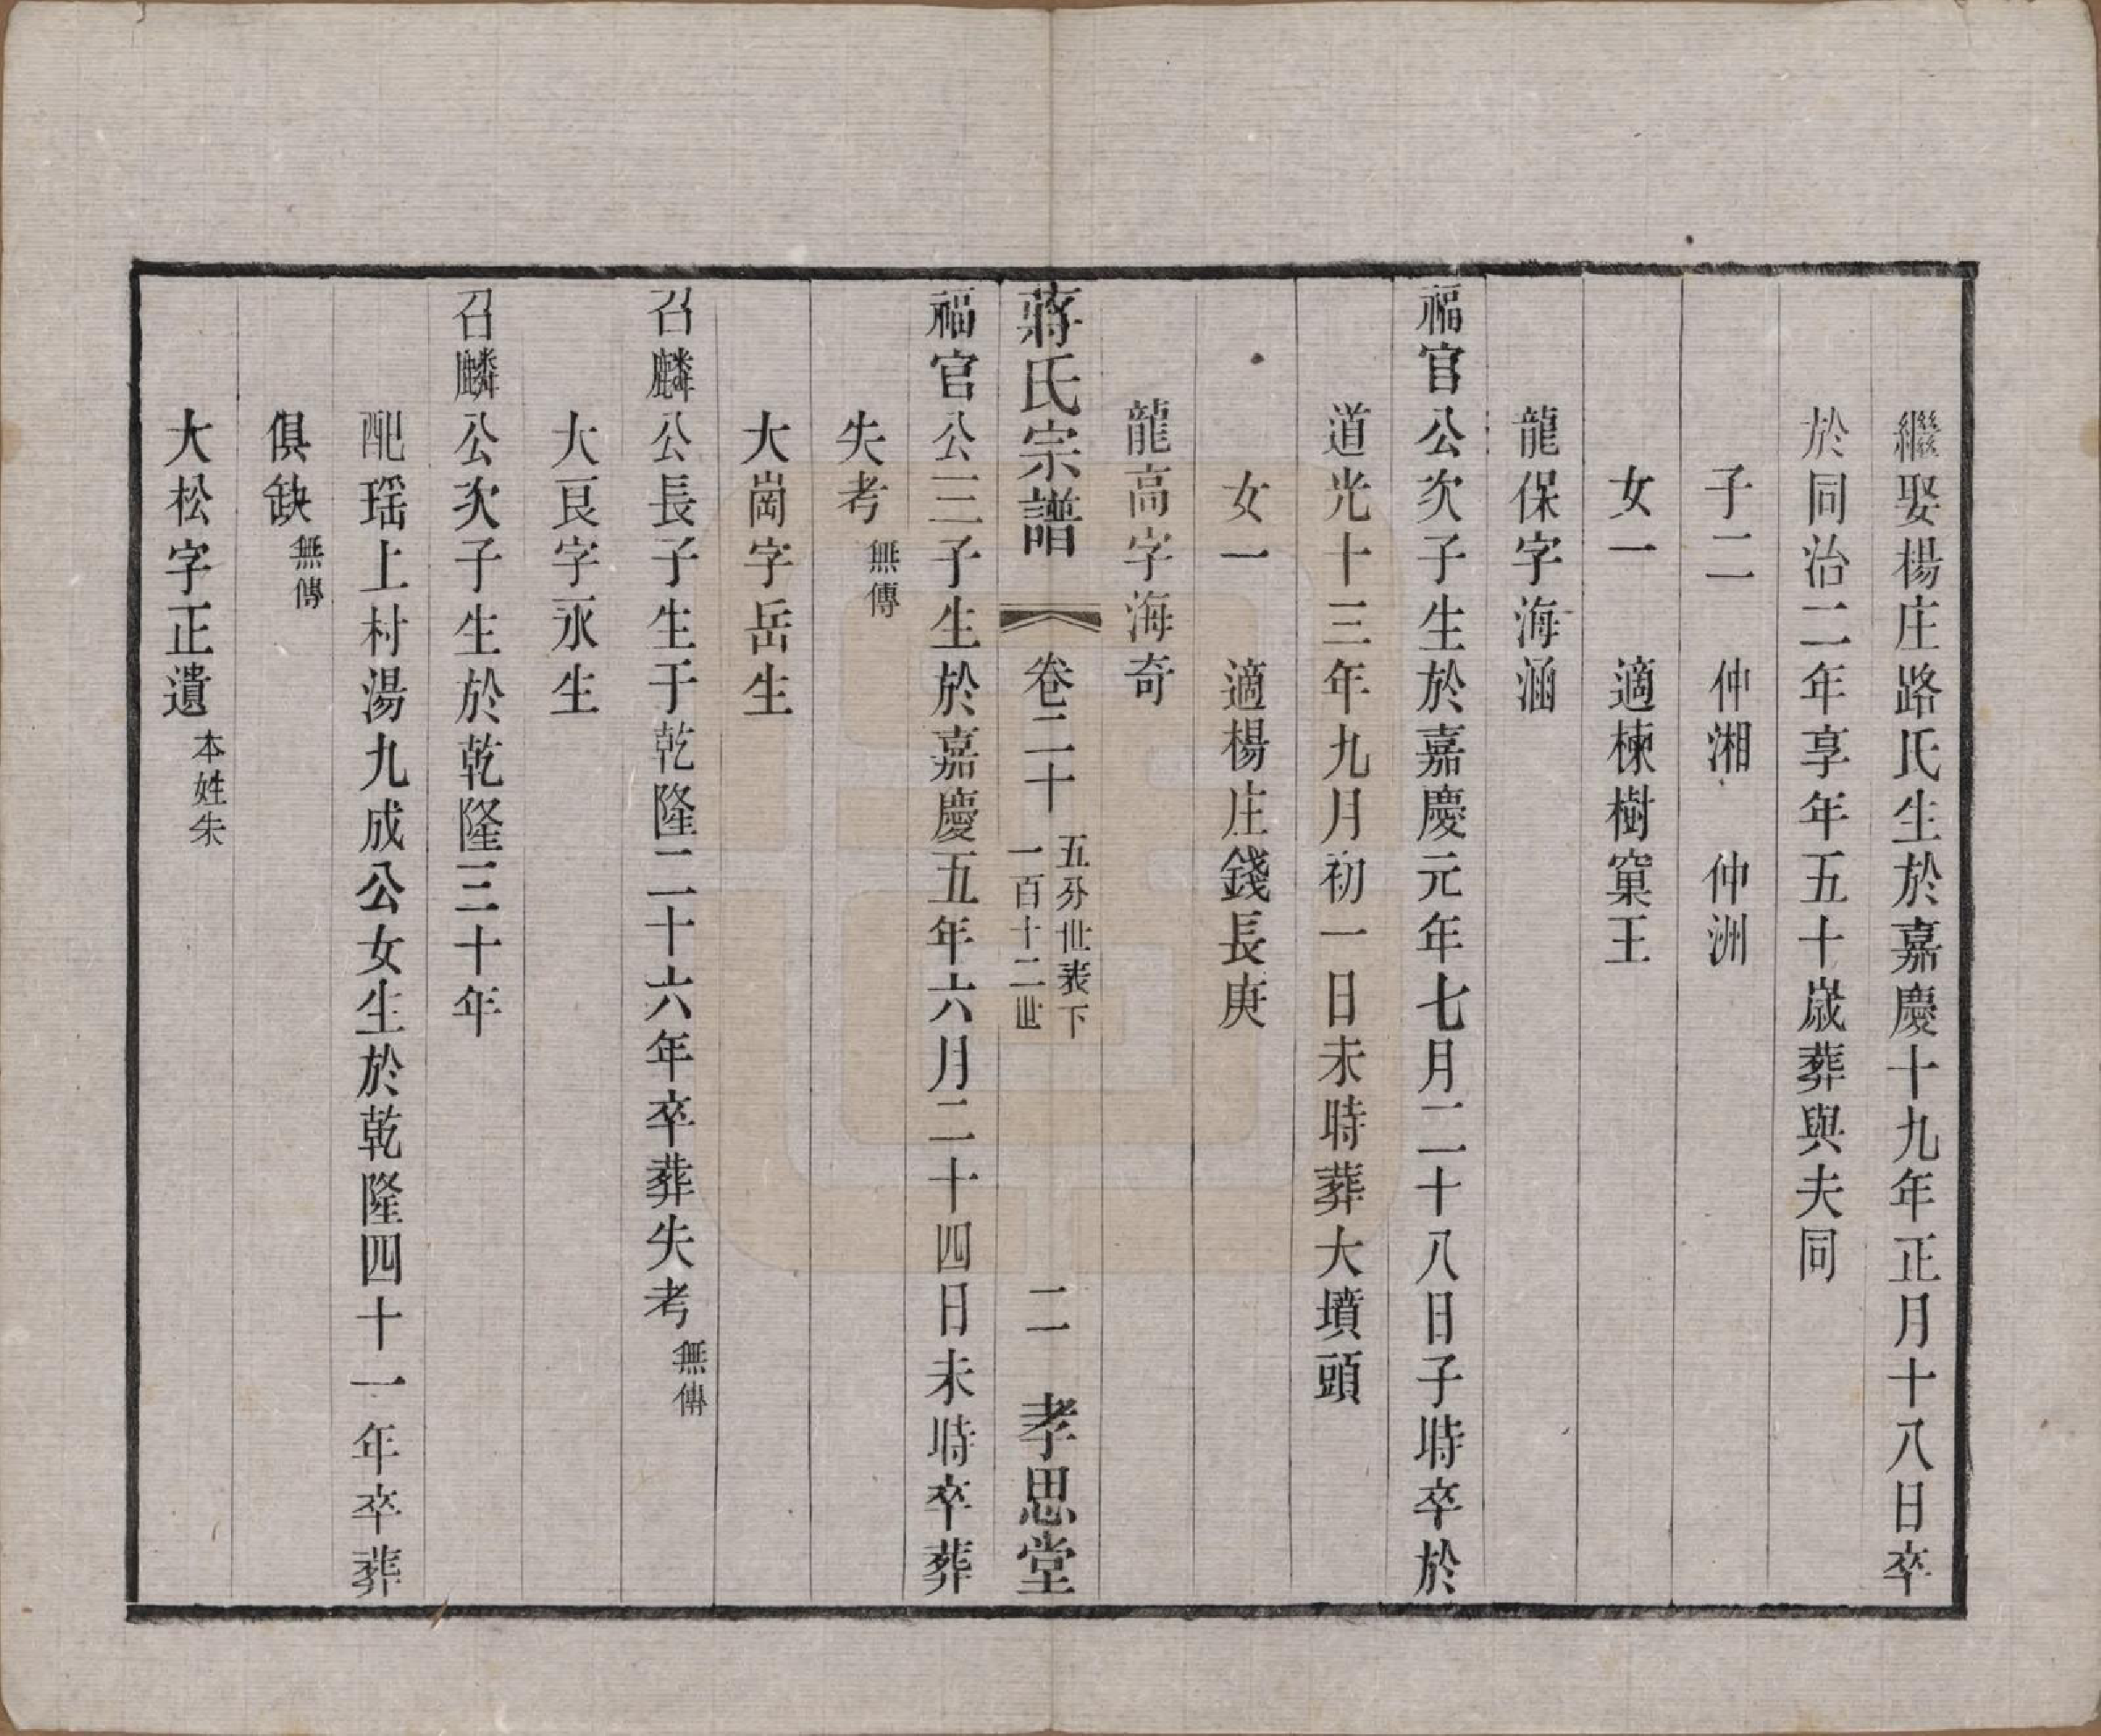 繼娶楊庄路氏生於嘉慶十九年正月十八日卒
於同治二年享年五十歲葬與夫同
子二　仲湘　仲洲
女一　適楝樹窠王
龍保字海涵
福官公次子生於嘉慶元年七月二十八日子時卒於
道光十三年九月初一日未時葬大墳頭
女一　適楊庄錢長庚
龍高字海奇
蔣氏宗譜　卷二十　五分世表下　一百十二世　二　孝思堂
福官公三子生於嘉慶五年六月二十四日未時卒葬
失考無傳
大崗字岳生
召麟公長子生于乾隆二十六年卒葬失考無傳
大艮字永生
召麟公次子生於乾隆三十年
配瑶上村湯九成公女生於乾隆四十一年卒葬
俱缺無傳
大松字正遺本姓朱